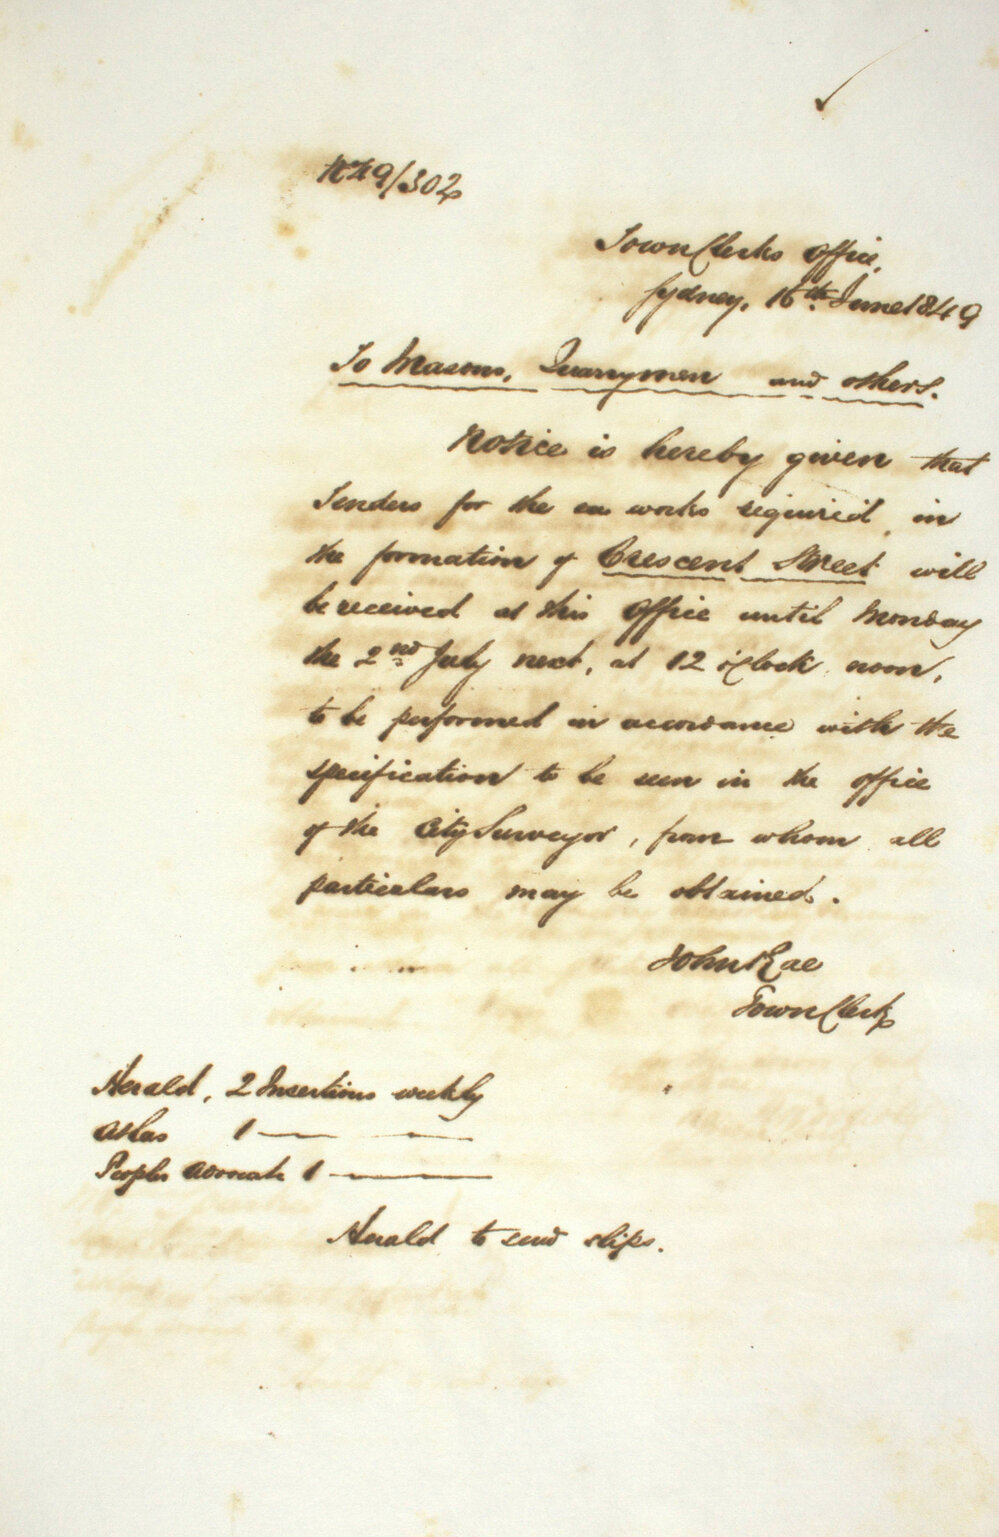 No 49/302
Town Clerks Office,
Sydney, 16th June 1849
To Masons, Quarrymen and others.
Notice is hereby given that
Tenders for the works required in
the formation of Crescent Street will
be received at this Office until Monday
the 2nd July next, at 12 o'Clock noon,
to be performed in accordance with the
specification to be seen in the office
of the City Surveyor, from whom all
particulars may be obtained.
John Rae
Town Clerk
Herald, 2 Insertions weekly
Atlas 1 — —
Peoples Advocate 1 —
Herald to send slips.